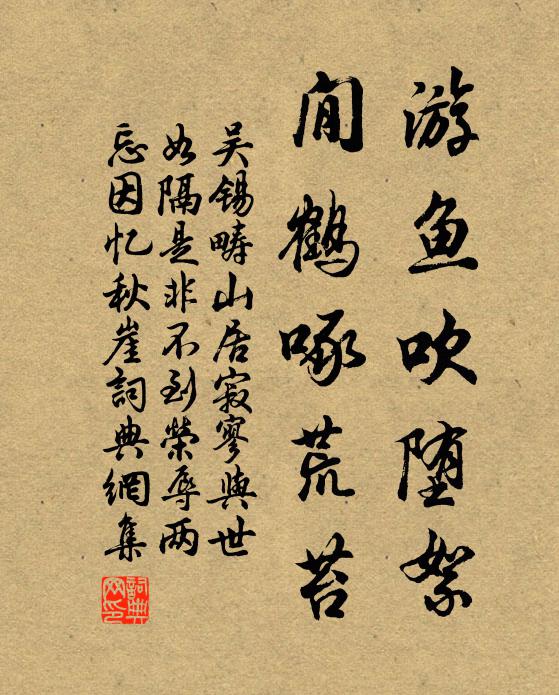 游鱼吹堕絮
闲鹤啄荒苔
吴锡畴山居寂寥與世
如隔是非不到榮辱两
忘因忆秋崖詞典網集
詞典
网印